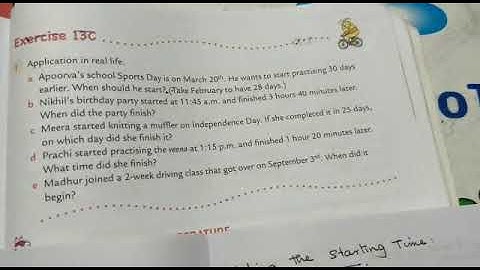 Exercise 13C
1 Application in real life.
a Apoorva's school Sports Day is on March 20th. He wants to start practising 30 days
earlier. When should he start? (Take February to have 28 days.)
b Nikhil's birthday party started at 11:45 a.m. and finished 3 hours 40 minutes later.
When did the party finish?
c Meera started knitting a muffler on Independence Day. If she completed it in 25 days,
on which day did she finish it?
d Prachi started practising the veena at 1:15 p.m. and finished 1 hour 20 minutes later.
What time did she finish?
e Madhur joined a 2-week driving class that got over on September 3rd. When did it
begin?
the Starting Time: